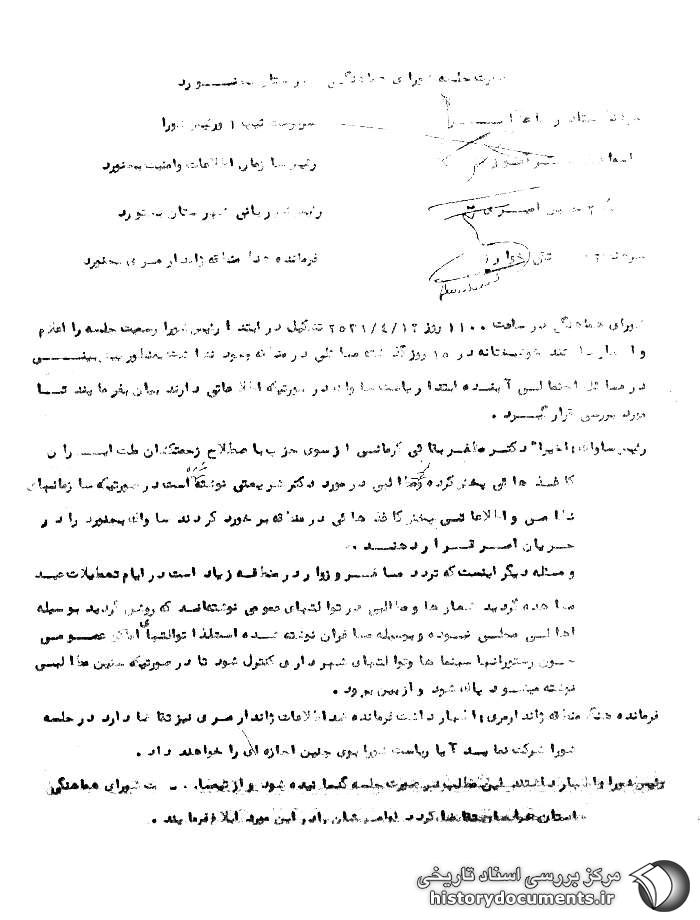 صورت جلسه شورای هماهنگی شهرستان بجنورد
سرپرست تیپ ۱ و رئیس شورا
رئیس سازمان اطلاعات و امنیت بجنورد
رئیس شهربانی شهرستان بجنورد
فرمانده هنگ منطقه ژاندارمری بجنورد
شورای هماهنگی در ساعت ۱۱۰۰ روز ۲۵۳۶/۴/۱۲ تشکیل در ابتدا رئیس شورا رسمیت جلسه را اعلام
و اظهار داشتند خوشبختانه در ۱۵ روز گذشته مسائلی در منطقه وجود نداشت بمنظور پیش بینی
در مسائل احتمالی آینده ابتدا ریاست ساواک در صورتیکه اطلاعاتی دارند بیان بفرمایند تا
مورد بررسی قرار گیرد .
رئیس ساواک : اخیرا" دکتر مظفر بقائی کرمانی از سوی حزب باصطلاح زحمتکشان ملت ایران
کاغذهائی پخش کرده و مطالبی در مورد دکتر شریعتی نوشته شده است در صورتیکه سازمانهای
نظامی و اطلاعاتی بپخش کاغذهائی در منطقه برخورد کردند ساواک بجنورد را در
جریان امر قرار دهند .
و مسئله دیگر اینست که تردد مسافر و زوار در منطقه زیاد است در ایام تعطیلات عید
مشاهده گردید شعارها و مطالبی در توالتهای عمومی نوشته‌اند که روشن گردید بوسیله
اهالی محلی نبوده و بوسیله مسافران نوشته شده است لذا توالتهای اماکن عمومی
چون رستورانها سینماها و توالتهای شهرداری کنترل شود تا در صورتیکه چنین مطالبی
نوشته میشود پاک شود و از بین برود .
فرمانده هنگ منطقه ژاندارمری : اظهار داشت فرمانده ضد اطلاعات ژاندارمری نیز تقاضا دارد در جلسه
شورا شرکت نماید آیا ریاست شورا بوی چنین اجازه ای را خواهند داد .
رئیس شورا : اظهار داشتند این مطالب در صورت جلسه گنجانیده شود و از شورای هماهنگی
استان خراسان تقاضا گردد اوامرشان را در این مورد ابلاغ فرمایند .
مرکز بررسی اسناد تاریخی
historydocuments.ir